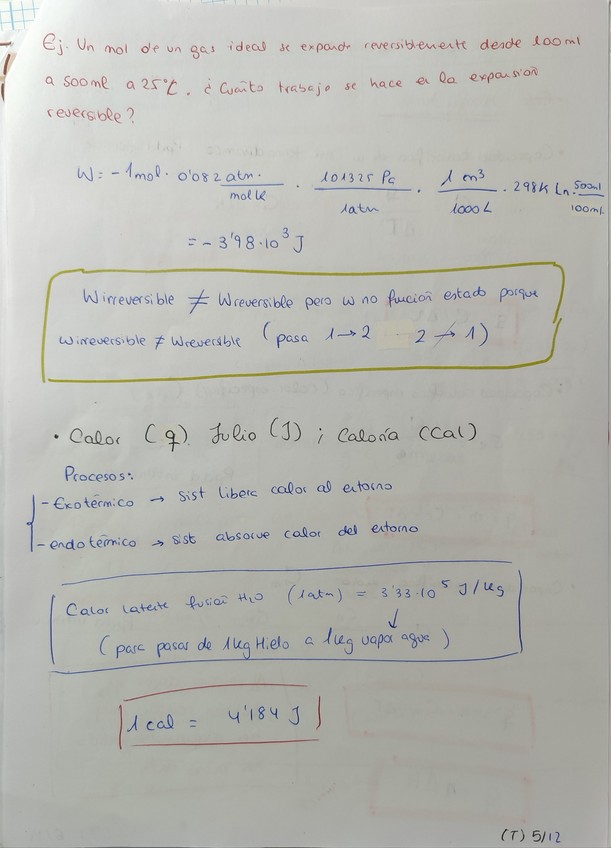 Ej. Un mol de un gas ideal se expande reversiblemente desde 100ml
a 500ml a 25°C. ¿Cuánto trabajo se hace en la expansión
reversible?
W = -1mol · 0'082 atm· / mol K · 101325 Pa / 1atm · 1 m³ / 1000L · 298K Ln · 500ml / 100ml
= -3'98·10³ J
Wirreversible ≠ Wreversible pero w no función estado porque
Wirreversible ≠ Wreversible (pasa 1→2 2↛1)
• Calor (q). Julio (J) ; Caloría (Cal)
Procesos:
- Exotérmico → sist libera calor al entorno
- endotérmico → sist absorve calor del entorno
Calor latente fusión H₂O (1atm) = 3'33·10⁵ J/kg
↓
(para pasar de 1kg Hielo a 1kg vapor agua)
1 cal = 4'184 J
(T) 5/12